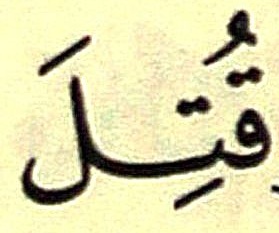 قُتِلَ